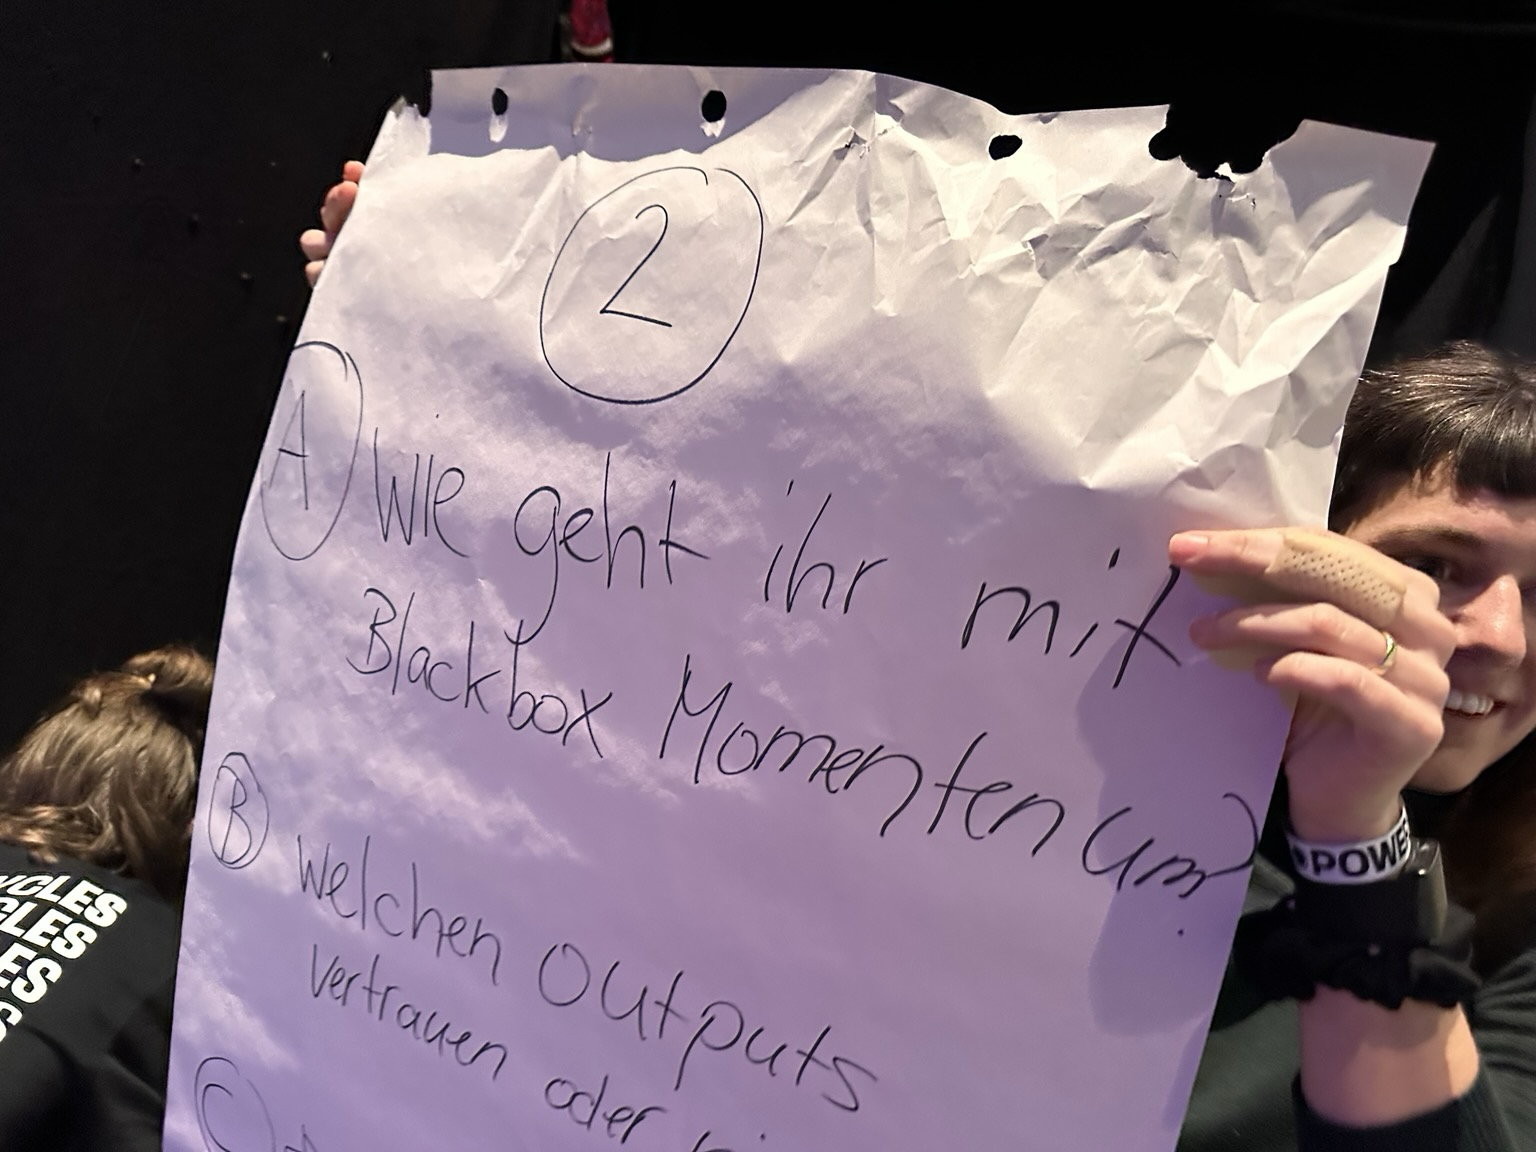 2
A Wie geht ihr mit
Blackbox Momenten um?
B Welchen Outputs
vertrauen oder
C
POWE
YCLES
CLES
ES
S